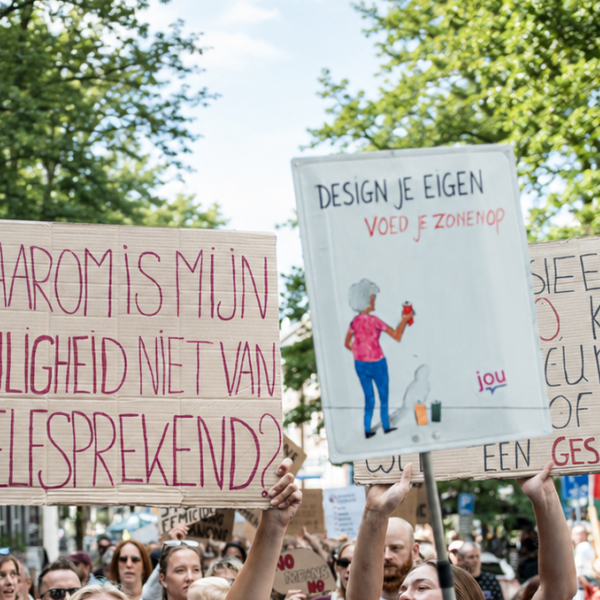 AAROM IS MIJN
ILIGHEID NIET VAN
ELFSPREKEND?
DESIGN JE EIGEN
VOED JE ZONEN OP
jou
SIEE
O, K
CUR
OF
EEN GES
FEMICIDE
NO
MEANS
NO